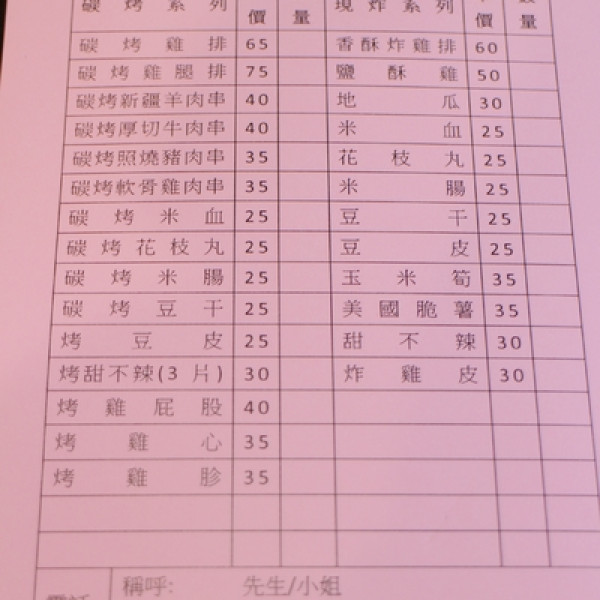 碳烤系列 價 量 現炸系列 價 量
碳烤雞排 65 香酥炸雞排 60
碳烤雞腿排 75 鹽酥雞 50
碳烤新疆羊肉串 40 地瓜 30
碳烤厚切牛肉串 40 米血 25
碳烤照燒豬肉串 35 花枝丸 25
碳烤軟骨雞肉串 35 米腸 25
碳烤米血 25 豆干 25
碳烤花枝丸 25 豆皮 25
碳烤米腸 25 玉米筍 35
碳烤豆干 25 美國脆薯 35
烤豆皮 25 甜不辣 30
烤甜不辣(3 片) 30 炸雞皮 30
烤雞屁股 40
烤雞心 35
烤雞胗 35
稱呼: 先生/小姐